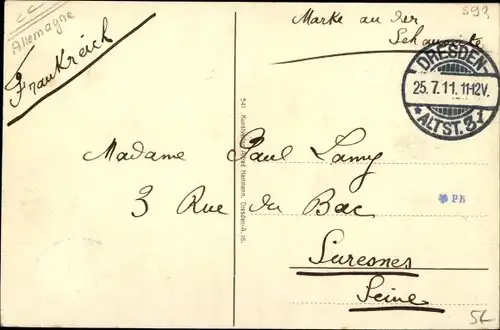 Allemagne
Frankreich
592
Marke an der
Schauseite
DRESDEN-
25.7.11.11-12V.
* ALTST. 31
541 Kunstverlag Alfred Hartmann, Dresden-A. 16.
Madame Paul Lamy
3 Rue du Bac
Suresnes
Seine
PK